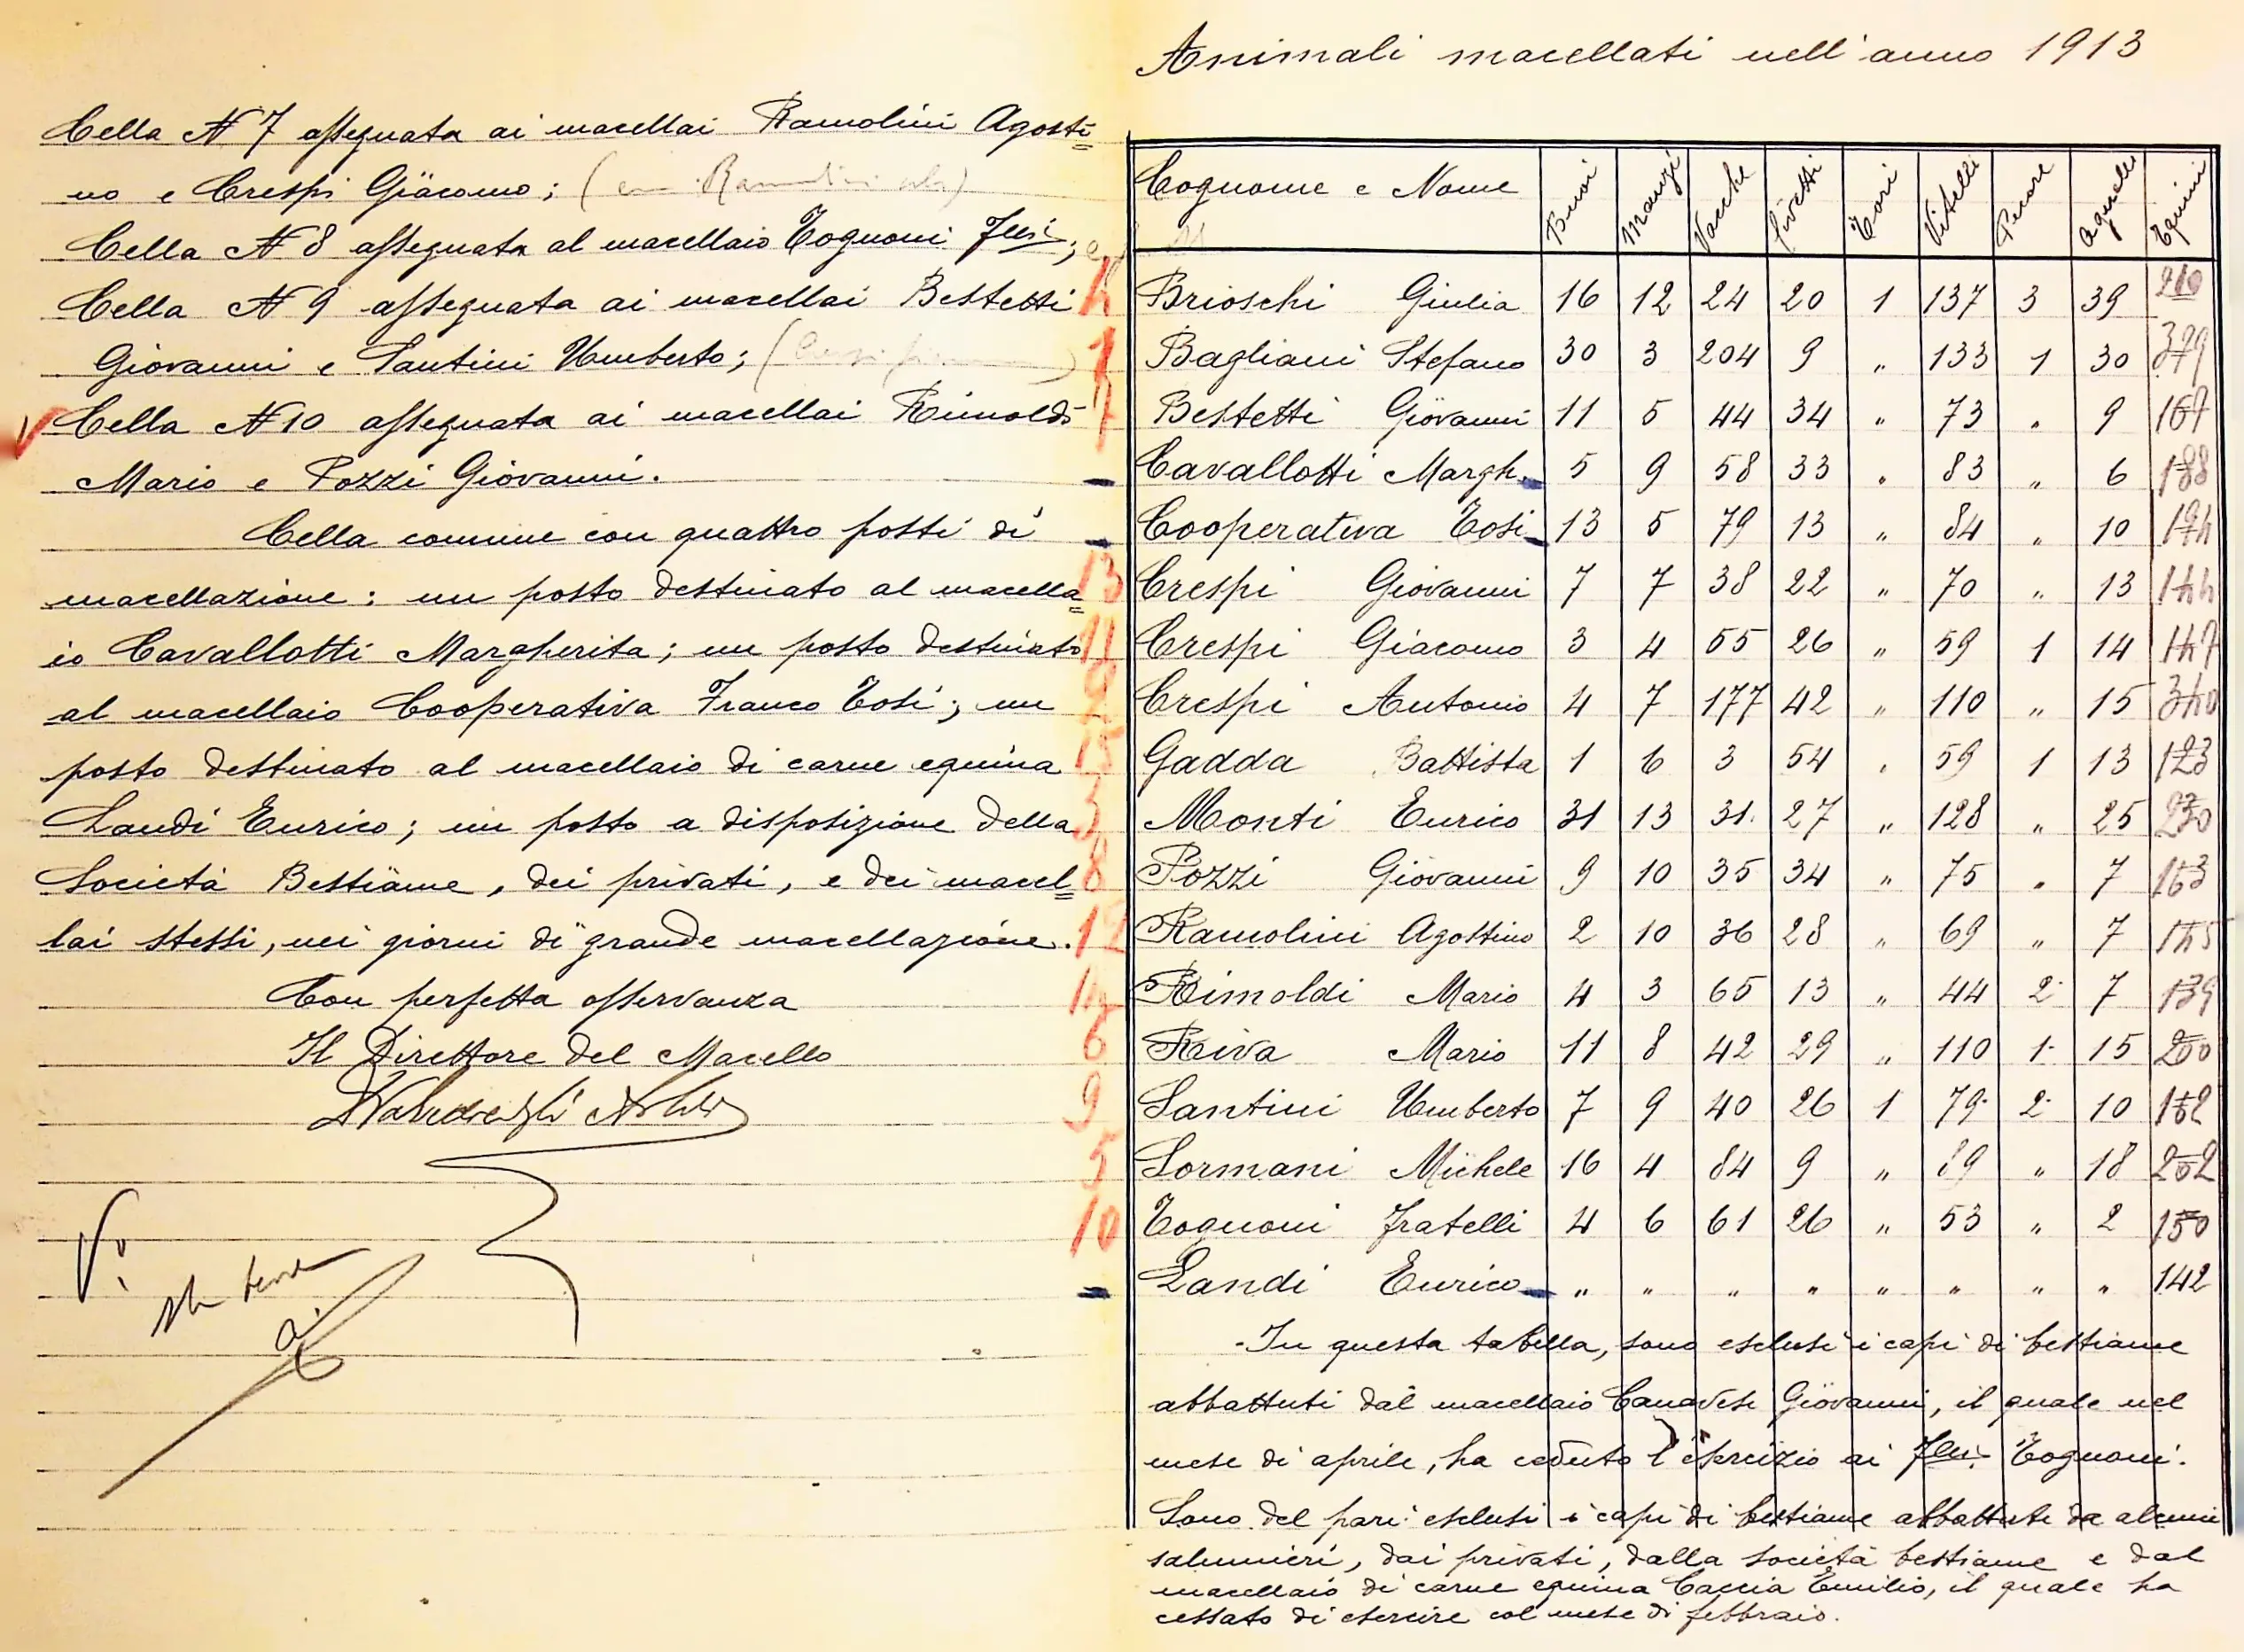 Cella N 7 assegnata ai macellai Ramolini Agosti=
no e Crespi Giacomo; (
Cella N 8 assegnata al macellaio Tognoni Flli;
Cella N 9 assegnata ai macellai Bestetti
Giovanni e Santini Umberto; (
Cella N 10 assegnata ai macellai Rimoldi
Mario e Pozzi Giovanni.
Cella comune con quattro posti di
macellazione: un posto destinato al macella=
io Cavallotti Margherita; un posto destinato
al macellaio Cooperativa Franco Tosi; un
posto destinato al macellaio di carne equina
Landi Enrico; un posto a disposizione della
Società Bestiame, dei privati, e dei macel=
lai stessi, nei giorni di grande macellazione.
Con perfetta osservanza
Il Direttore del Macello
Animali macellati nell'anno 1913
Cognome e Nome Buoi Manzi Vacche Civetti Tori Vitelli Pecore Agnelli Equini
Brioschi Giulia 16 12 24 20 1 137 3 39 210
13 Bagliani Stefano 30 3 204 9 " 133 1 30 379
Bestetti Giovanni 11 5 44 34 " 73 " 9 167
Cavallotti Margh. 5 9 58 33 " 83 " 6 188
Cooperativa Tosi 13 5 79 13 " 84 " 10 194
13 Crespi Giovanni 7 7 38 22 " 70 " 13 144
11 Crespi Giacomo 3 4 55 26 " 59 1 14 147
2 Crespi Antonio 4 7 177 42 " 110 " 15 340
15 Gadda Battista 1 6 3 54 " 59 1 13 123
3 Monti Enrico 31 13 31 27 " 128 " 25 230
8 Pozzi Giovanni 9 10 35 34 " 75 " 7 163
12 Ramolini Agostino 2 10 36 28 " 69 " 7 145
14 Rimoldi Mario 4 3 65 13 " 44 2 7 139
6 Riva Mario 11 8 42 29 " 110 1 15 200
9 Santini Umberto 7 9 40 26 1 79 2 10 162
5 Sormani Michele 16 4 84 9 " 89 " 18 202
10 Tognoni Fratelli 4 6 61 26 " 53 " 2 150
Landi Enrico " " " " " " " " 142
-In questa tabella, sono esclusi i capi di bestiame
abbattuti dal macellaio Canavesi Giovanni, il quale nel
mese di aprile, ha ceduto l'esercizio ai Flli. Tognoni.
Sono del pari esclusi i capi di bestiame abbattuti da alcuni
salumieri, dai privati, dalla società bestiame e dal
macellaio di carne equina Caccia Emilio, il quale ha
cessato di esercire col mese di febbraio.